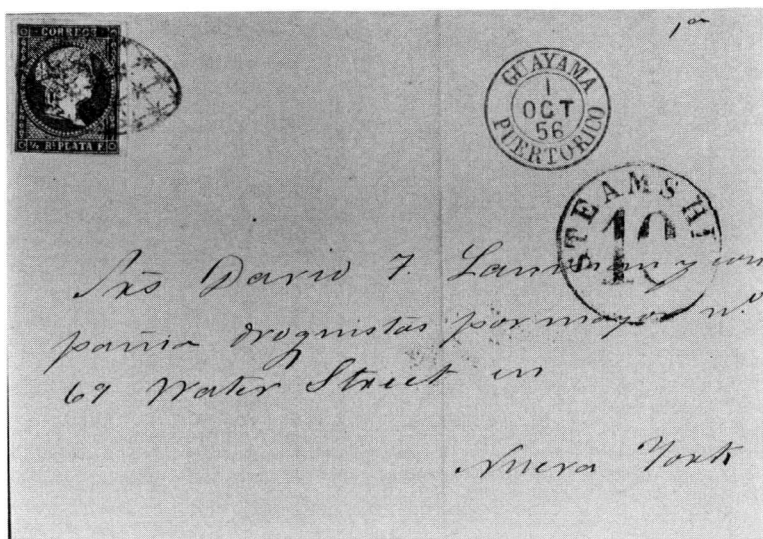 CORREOS
½ Rl PLATA F.
GUAYAMA
1
OCT
56
PUERTO RICO
STEAMSHI
10
Srs David T. Lanman y com
pañia droguistas por mayor nº
69 Water Street en
Nueva York